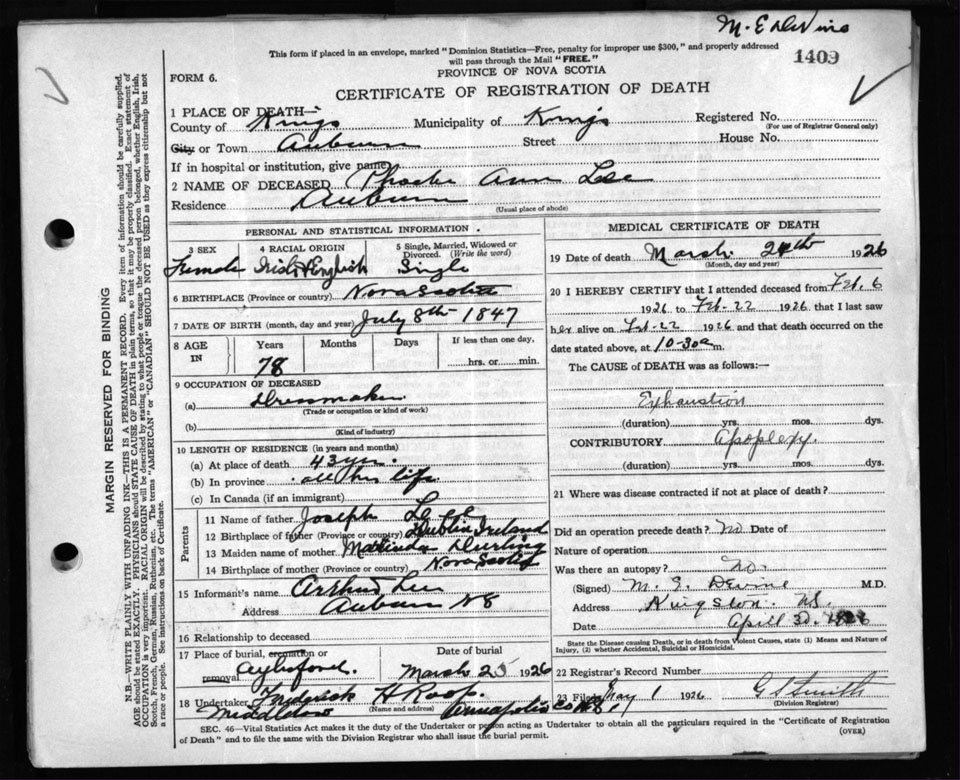 M. E. DeVine
This form if placed in an envelope, marked "Dominion Statistics—Free, penalty for improper use $300," and properly addressed
will pass through the Mail "FREE."
1409
PROVINCE OF NOVA SCOTIA
FORM 6.
CERTIFICATE OF REGISTRATION OF DEATH
1 PLACE OF DEATH—
County of Kings Municipality of Kings Registered No.
(For use of Registrar General only)
City or Town Auburn Street House No.
If in hospital or institution, give name
2 NAME OF DECEASED Phoebe Ann Lee
Residence Auburn
(Usual place of abode)
PERSONAL AND STATISTICAL INFORMATION
3 SEX 4 RACIAL ORIGIN 5 Single, Married, Widowed or Divorced. (Write the word)
Female Irish & English Single
6 BIRTHPLACE (Province or country) Nova Scotia
7 DATE OF BIRTH (month, day and year) July 8th 1847
8 AGE IN Years Months Days If less than one day,
78 hrs. or min.
9 OCCUPATION OF DECEASED
(a) Dressmaker
(Trade or occupation or kind of work)
(b)
(Kind of industry)
10 LENGTH OF RESIDENCE (in years and months)
(a) At place of death 43 yrs.
(b) In province all her life
(c) In Canada (if an immigrant)
Parents
11 Name of father Joseph Lee
12 Birthplace of father (Province or country) Dublin Ireland
13 Maiden name of mother Durling
14 Birthplace of mother (Province or country) Nova Scotia
15 Informant's name Arthur Lee
Address Auburn NS
16 Relationship to deceased
17 Place of burial, cremation or removal Date of burial
Aylesford March 25 1926
18 Undertaker Frederick H Roop
(Name and address)
Middleton Annapolis Co NS
MEDICAL CERTIFICATE OF DEATH
19 Date of death March 24th 1926
(Month, day and year)
20 I HEREBY CERTIFY that I attended deceased from Feb. 6
1926 to Feb-22 1926 that I last saw
her alive on Feb-22 1926 and that death occurred on the
date stated above, at 10-30 a m.
The CAUSE of DEATH was as follows:—
Exhaustion
(duration) yrs. mos. dys.
CONTRIBUTORY Apoplexy.
(duration) yrs. mos. dys.
21 Where was disease contracted if not at place of death?
Did an operation precede death? No Date of
Nature of operation
Was there an autopsy? No.
(Signed) M. E. DeVine M.D.
Address Kingston. NS.
Date April 30. 1926
State the Disease causing Death, or in death from Violent Causes, state (1) Means and Nature of
Injury, (2) whether Accidental, Suicidal or Homicidal.
22 Registrar's Record Number
23 Filed May 1 1926 G S Smith
(Division Registrar)
SEC. 46—Vital Statistics Act makes it the duty of the Undertaker or person acting as Undertaker to obtain all the particulars required in the "Certificate of Registration
of Death" and to file the same with the Division Registrar who shall issue the burial permit.
(OVER)
MARGIN RESERVED FOR BINDING
N.B.—WRITE PLAINLY WITH UNFADING INK—THIS IS A PERMANENT RECORD. Every item of information should be carefully supplied.
AGE should be stated EXACTLY. PHYSICIANS should STATE CAUSE OF DEATH in plain terms, so that it may be properly classified. Exact statement of
OCCUPATION is very important. RACIAL ORIGIN will be described by stating to what people or tongue the deceased person belonged, whether English, Irish,
Scotch, French, German, Russian, Ruthenian, etc. The terms "AMERICAN" or "CANADIAN" SHOULD NOT BE USED as they express citizenship but not
a race or people. See instructions on back of Certificate.